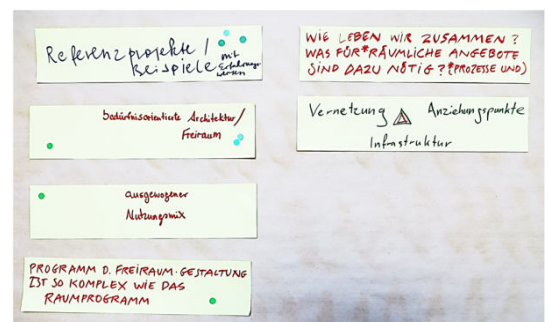 Referenzprojekte /
Beispiele mit Erfahrungswerten
bedürfnisorientierte Architektur/
Freiraum
ausgewogener
Nutzungsmix
PROGRAMM D. FREIRAUM-GESTALTUNG
IST SO KOMPLEX WIE DAS
RAUMPROGRAMM
WIE LEBEN WIR ZUSAMMEN?
WAS FÜR*RÄUMLICHE ANGEBOTE
SIND DAZU NÖTIG? *(PROZESSE UND)
Vernetzung Anziehungspunkte
Infrastruktur